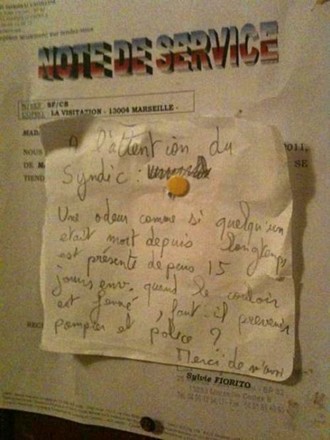 NOTE DE SERVICE
N/REF RF/CB
LA VISITATION - 13004 MARSEILLE -
A l'attention du
Syndic :
Une odeur comme si quelqu'un
était mort depuis longtemps
est présente depuis 15
jours env. quand le couloir
est fermé, faut-il prévenir
pompier et police ?
Merci de m'avoi
2011,
SE
NOUS
TIEND
Sylvie FIORITO